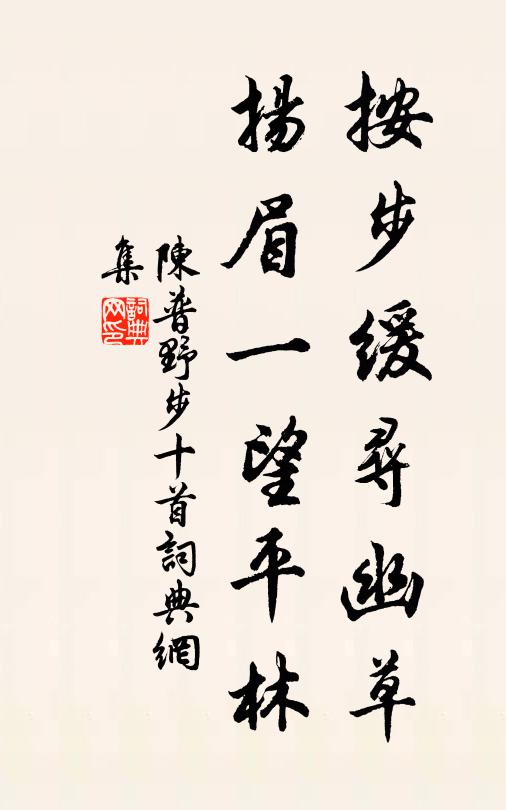 按步緩尋幽草
揚眉一望平林
陳普野步十首詞典網
集
詞典
网印